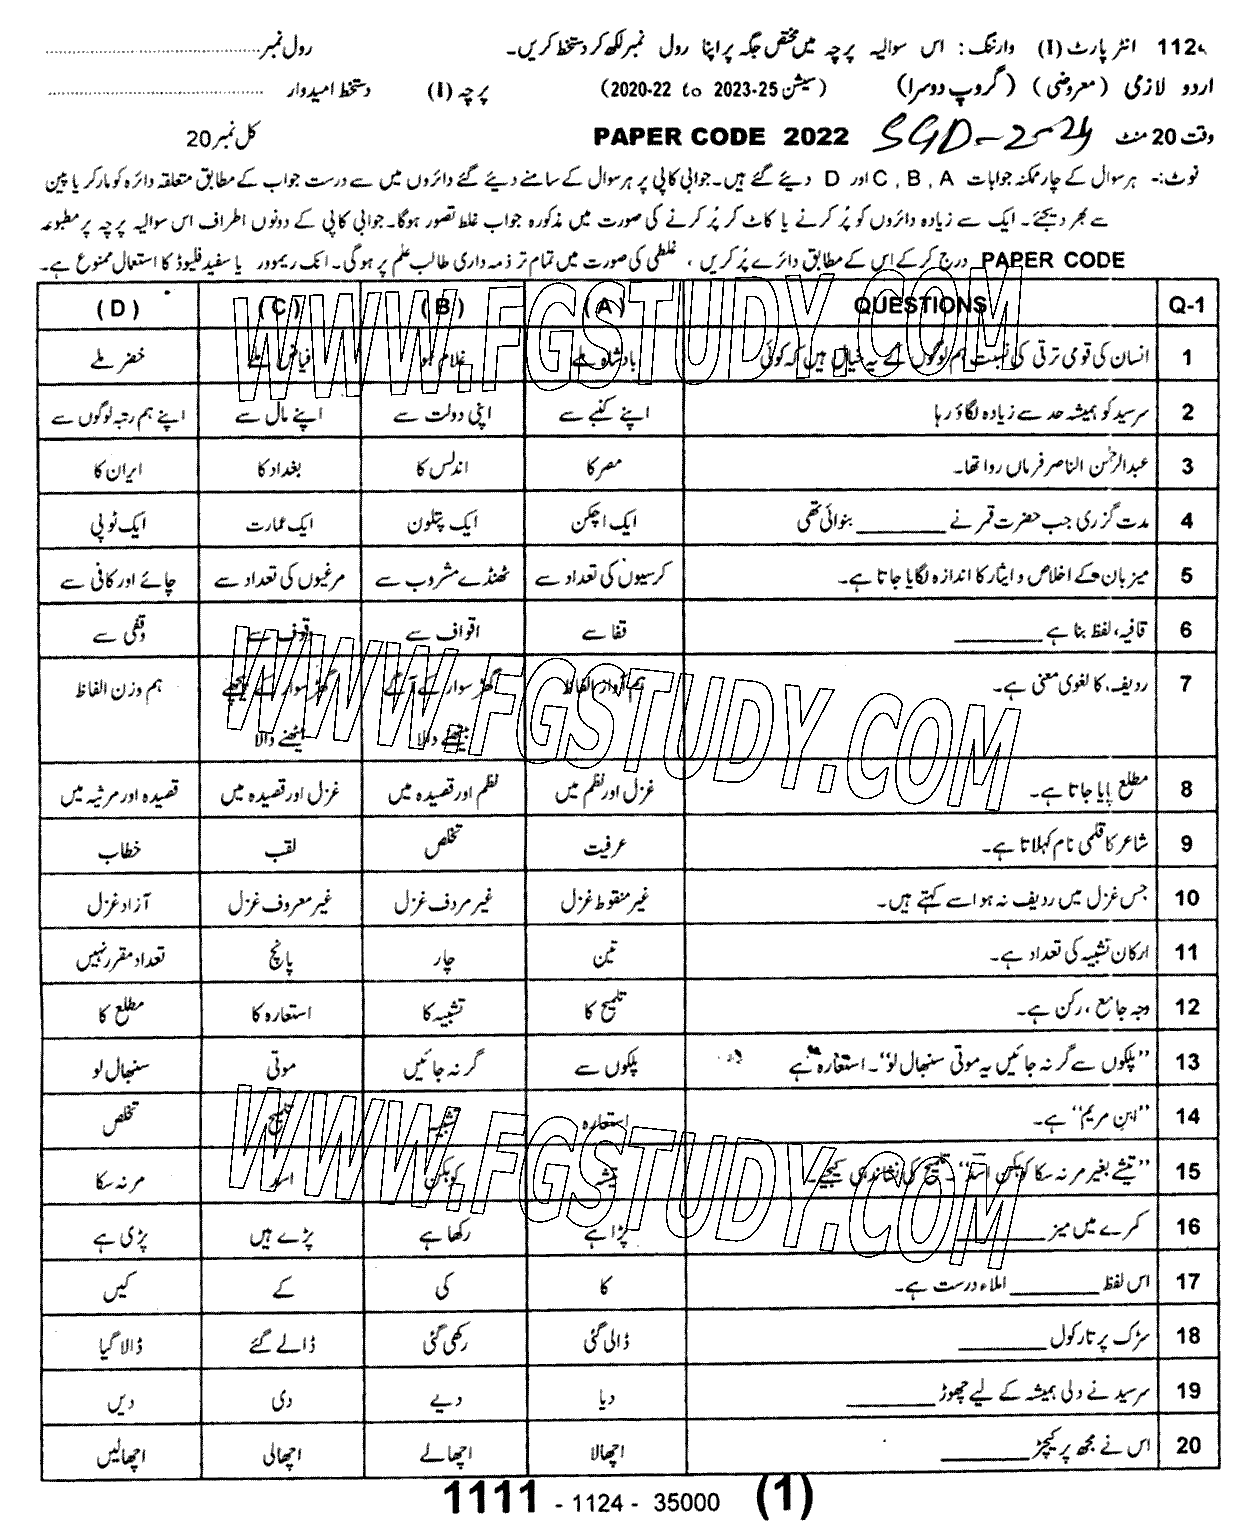 112 انٹر پارٹ (I) وارننگ : اس سوالیہ پرچہ میں مختص جگہ پر اپنا رول نمبر لکھ کر دستخط کریں۔ رول نمبر
اردو لازمی (معروضی) (گروپ دوسرا) (سیشن 2020-22 to 2023-25) پرچہ (I) دستخط امیدوار
وقت 20 منٹ PAPER CODE 2022 SGD-2024 کل نمبر 20
نوٹ:۔ ہر سوال کے چار ممکنہ جوابات C , B , A اور D دیئے گئے ہیں۔ جوابی کاپی پر ہر سوال کے سامنے دیئے گئے دائروں میں سے درست جواب کے مطابق متعلقہ دائرہ کو مارکر یا پین
سے بھر دیجئے۔ ایک سے زیادہ دائروں کو پُر کرنے یا کاٹ کر پُر کرنے کی صورت میں مذکورہ جواب غلط تصور ہوگا۔ جوابی کاپی کے دونوں اطراف اس سوالیہ پرچہ پر مطبوعہ
PAPER CODE درج کر کے اس کے مطابق دائرے پُر کریں ، غلطی کی صورت میں تمام تر ذمہ داری طالب علم پر ہوگی۔ انک ریموور یا سفید فلیوڈ کا استعمال ممنوع ہے۔
Q-1 QUESTIONS (A) (B) (C) (D)
1 انسان کی قومی ترقی کی نسبت ہم لوگوں کے یہ خیال ہیں کہ کوئی بادشاہ ملے غلام ہو فیاض ملے خضر ملے
2 سرسید کو ہمیشہ حد سے زیادہ لگاؤ رہا اپنے کنبے سے اپنی دولت سے اپنے مال سے اپنے ہم رتبہ لوگوں سے
3 عبدالرحمٰن الناصر فرماں روا تھا۔ مصر کا اندلس کا بغداد کا ایران کا
4 مدت گزری جب حضرت قمر نے ________ بنوائی تھی ایک اچکن ایک پتلون ایک عمارت ایک ٹوپی
5 میزبان کے اخلاص و ایثار کا اندازہ لگایا جاتا ہے۔ کرسیوں کی تعداد سے ٹھنڈے مشروب سے مرغیوں کی تعداد سے چائے اور کافی سے
6 قافیہ، لفظ بنا ہے ________ قفا سے اقواف سے وقوف سے وقفی سے
7 ردیف، کا لغوی معنی ہے۔ ہم آواز الفاظ گھڑ سوار کے آگے بیٹھنے والا گھڑ سوار کے پیچھے بیٹھنے والا ہم وزن الفاظ
8 مطلع پایا جاتا ہے۔ غزل اور نظم میں نظم اور قصیدہ میں غزل اور قصیدہ میں قصیدہ اور مرثیہ میں
9 شاعر کا قلمی نام کہلاتا ہے۔ عرفیت تخلص لقب خطاب
10 جس غزل میں ردیف نہ ہو اسے کہتے ہیں۔ غیر منقوط غزل غیر مردف غزل غیر معروف غزل آزاد غزل
11 ارکان تشبیہ کی تعداد ہے۔ تین چار پانچ تعداد مقرر نہیں
12 وجہ جامع ، رکن ہے۔ تلمیح کا تشبیہ کا استعارہ کا مطلع کا
13 "پلکوں سے گر نہ جائیں یہ موتی سنبھال لو"۔ استعارہ ہے پلکوں سے گر نہ جائیں موتی سنبھال لو
14 "ابنِ مریم" ہے۔ استعارہ تشبیہ تلمیح تخلص
15 "تیشے بغیر مر نہ سکا کوہکن اسد"۔ تلمیح کی نشاندہی کیجیے۔ تیشہ کوہکن اسد مر نہ سکا
16 کمرے میں میز ________ پڑا ہے رکھا ہے پڑے ہیں پڑی ہے
17 اس لفظ ________ املاء درست ہے۔ کا کی کے کیں
18 سڑک پر تارکول ________ ڈالی گئی رکھی گئی ڈالے گئے ڈالا گیا
19 سرسید نے دلی ہمیشہ کے لیے چھوڑ ________ دیا دیے دی دیں
20 اس نے مجھ پر کیچڑ ________ اچھالا اچھالے اچھالی اچھالیں
1111 - 1124 - 35000 (1)
WWW.FGSTUDY.COM
WWW.FGSTUDY.COM
WWW.FGSTUDY.COM